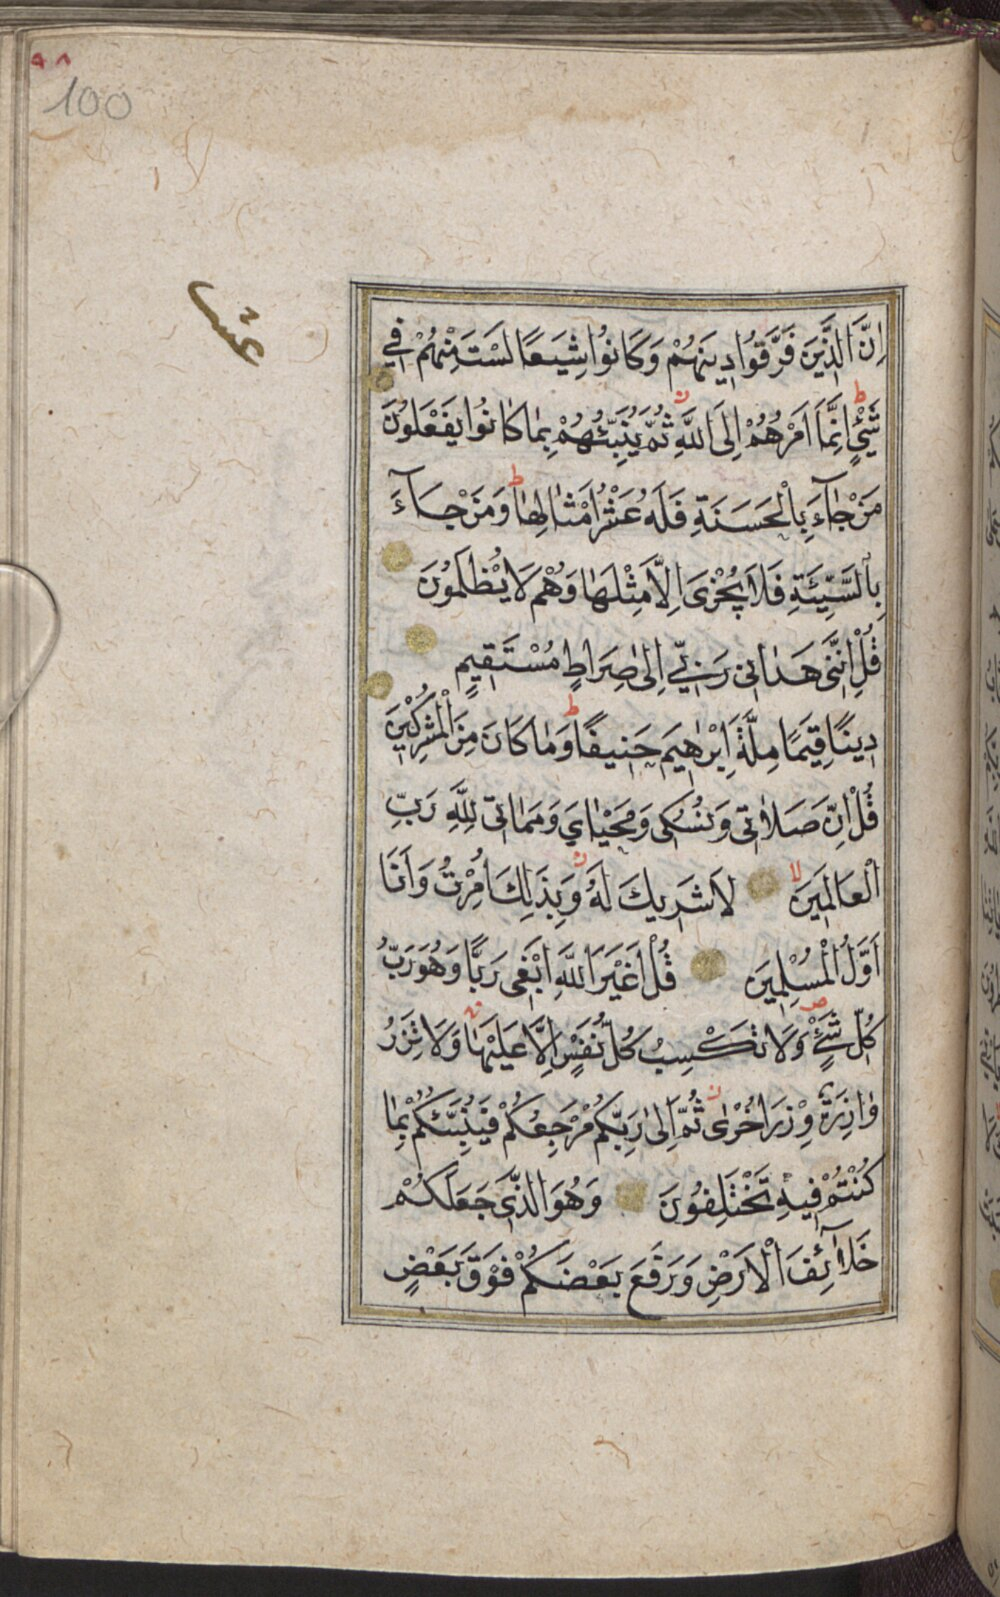 ٩٨
100
عشر
اِنَّ الَّذِينَ فَرَّقُوا دِينَهُمْ وَكَانُوا شِيَعًا لَسْتَ مِنْهُمْ فِي
شَيْءٍ ط اِنَّمَا اَمْرُهُمْ اِلَى اللَّهِ ثُمَّ يُنَبِّئُهُمْ بِمَا كَانُوا يَفْعَلُونَ
مَنْ جَآءَ بِالْحَسَنَةِ فَلَهُ عَشْرُ اَمْثَالِهَا ط وَمَنْ جَآءَ
بِالسَّيِّئَةِ فَلَا يُجْزَى اِلَّا مِثْلَهَا وَهُمْ لَا يُظْلَمُونَ
قُلْ اِنَّنِي هَدَانِي رَبِّي اِلَى صِرَاطٍ مُسْتَقِيمٍ
دِينًا قِيَمًا مِلَّةَ اِبْرٰهِيمَ حَنِيفًا ط وَمَا كَانَ مِنَ الْمُشْرِكِينَ
قُلْ اِنَّ صَلَاتِي وَنُسُكِي وَمَحْيَايَ وَمَمَاتِي لِلَّهِ رَبِّ
الْعَالَمِينَ لا لَا شَرِيكَ لَهُ وَبِذَلِكَ اُمِرْتُ وَاَنَا
اَوَّلُ الْمُسْلِمِينَ قُلْ اَغَيْرَ اللَّهِ اَبْغِي رَبًّا وَهُوَ رَبُّ
كُلِّ شَيْءٍ ص وَلَا تَكْسِبُ كُلُّ نَفْسٍ اِلَّا عَلَيْهَا وَلَا تَزِرُ
وَازِرَةٌ وِزْرَ اُخْرَى ثُمَّ اِلَى رَبِّكُمْ مَرْجِعُكُمْ فَيُنَبِّئُكُمْ بِمَا
كُنْتُمْ فِيهِ تَخْتَلِفُونَ وَهُوَ الَّذِي جَعَلَكُمْ
خَلَآئِفَ الْاَرْضِ وَرَفَعَ بَعْضَكُمْ فَوْقَ بَعْضٍ